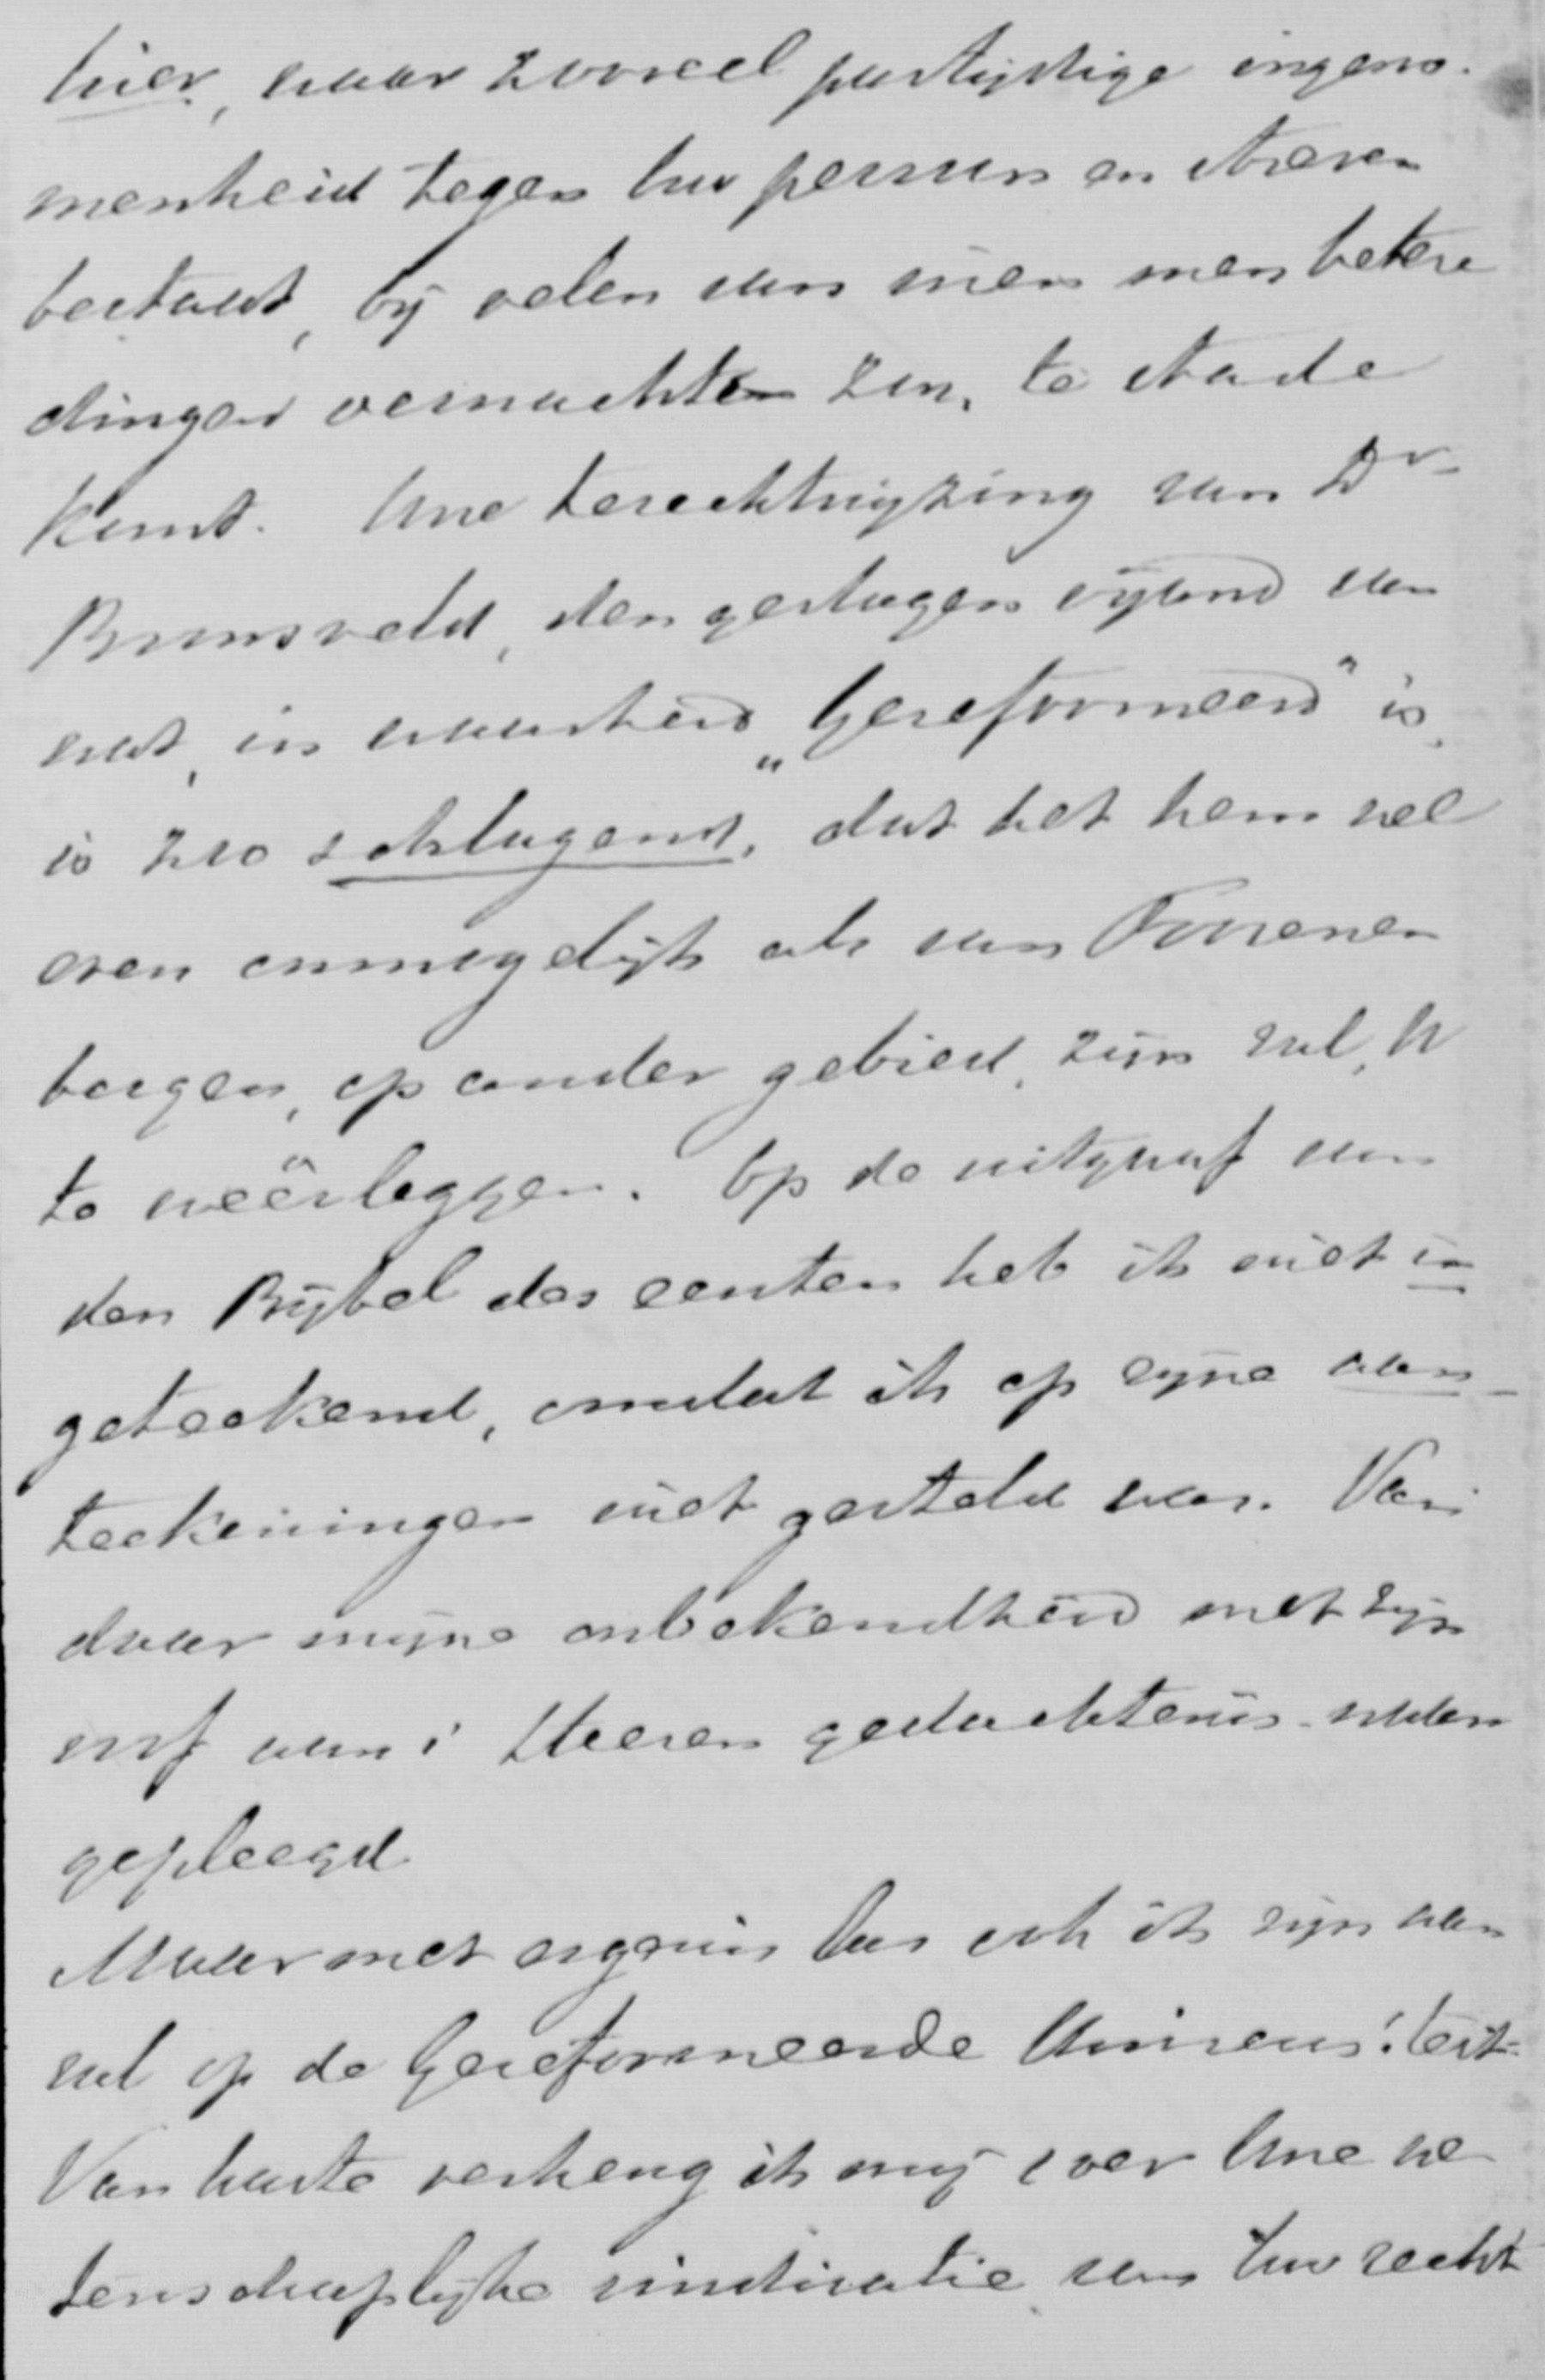 hier, waar zooveel partijdige ingeno-
menheid tegen Uw persoon en streven
bestaat, bij velen van wien men betere
dingen verwachten zou, te stade
komt. Uwe terechtwijzing van Dr
Bronsveld, den geslagen vijand van
wat, in waarheid „Gereformeerd" is,
is zoo schlagend, dat het hem wel
even onmogelijk als van Toorenen
bergen, op ander gebied, zijn zal, U
te weêrleggen. Op de uitgaaf van
den Bijbel des eersten heb ik niet in
geteekend, omdat ik op zijne aan-
teekeningen niet gesteld was. Van
daar mijne onbekendheid met zijn
aan 's Heeren gedachtenis
gepleegd
Maar met ergernis las ook ik zijn aan
val op de Gereformeerde Universiteit.
Van harte verheug ik mij over Uwe we
tenschaplijke vindicatie van Uw recht